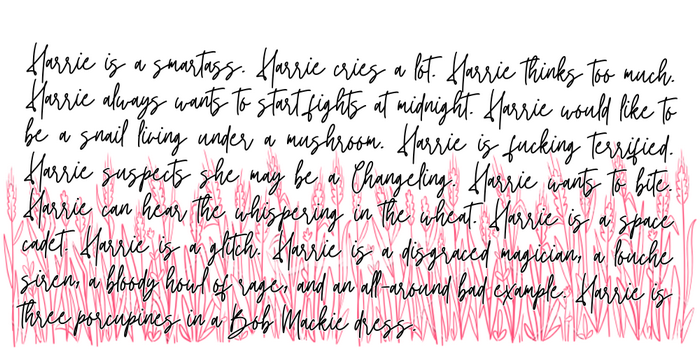 Harrie is a smartass. Harrie cries a lot. Harrie thinks too much.
Harrie always wants to start fights at midnight. Harrie would like to
be a snail living under a mushroom. Harrie is fucking terrified.
Harrie suspects she may be a Changeling. Harrie wants to bite.
Harrie can hear the whispering in the wheat. Harrie is a space
cadet. Harrie is a glitch. Harrie is a disgraced magician, a louche
siren, a bloody howl of rage, and an all-around bad example. Harrie is
three porcupines in a Bob Mackie dress.